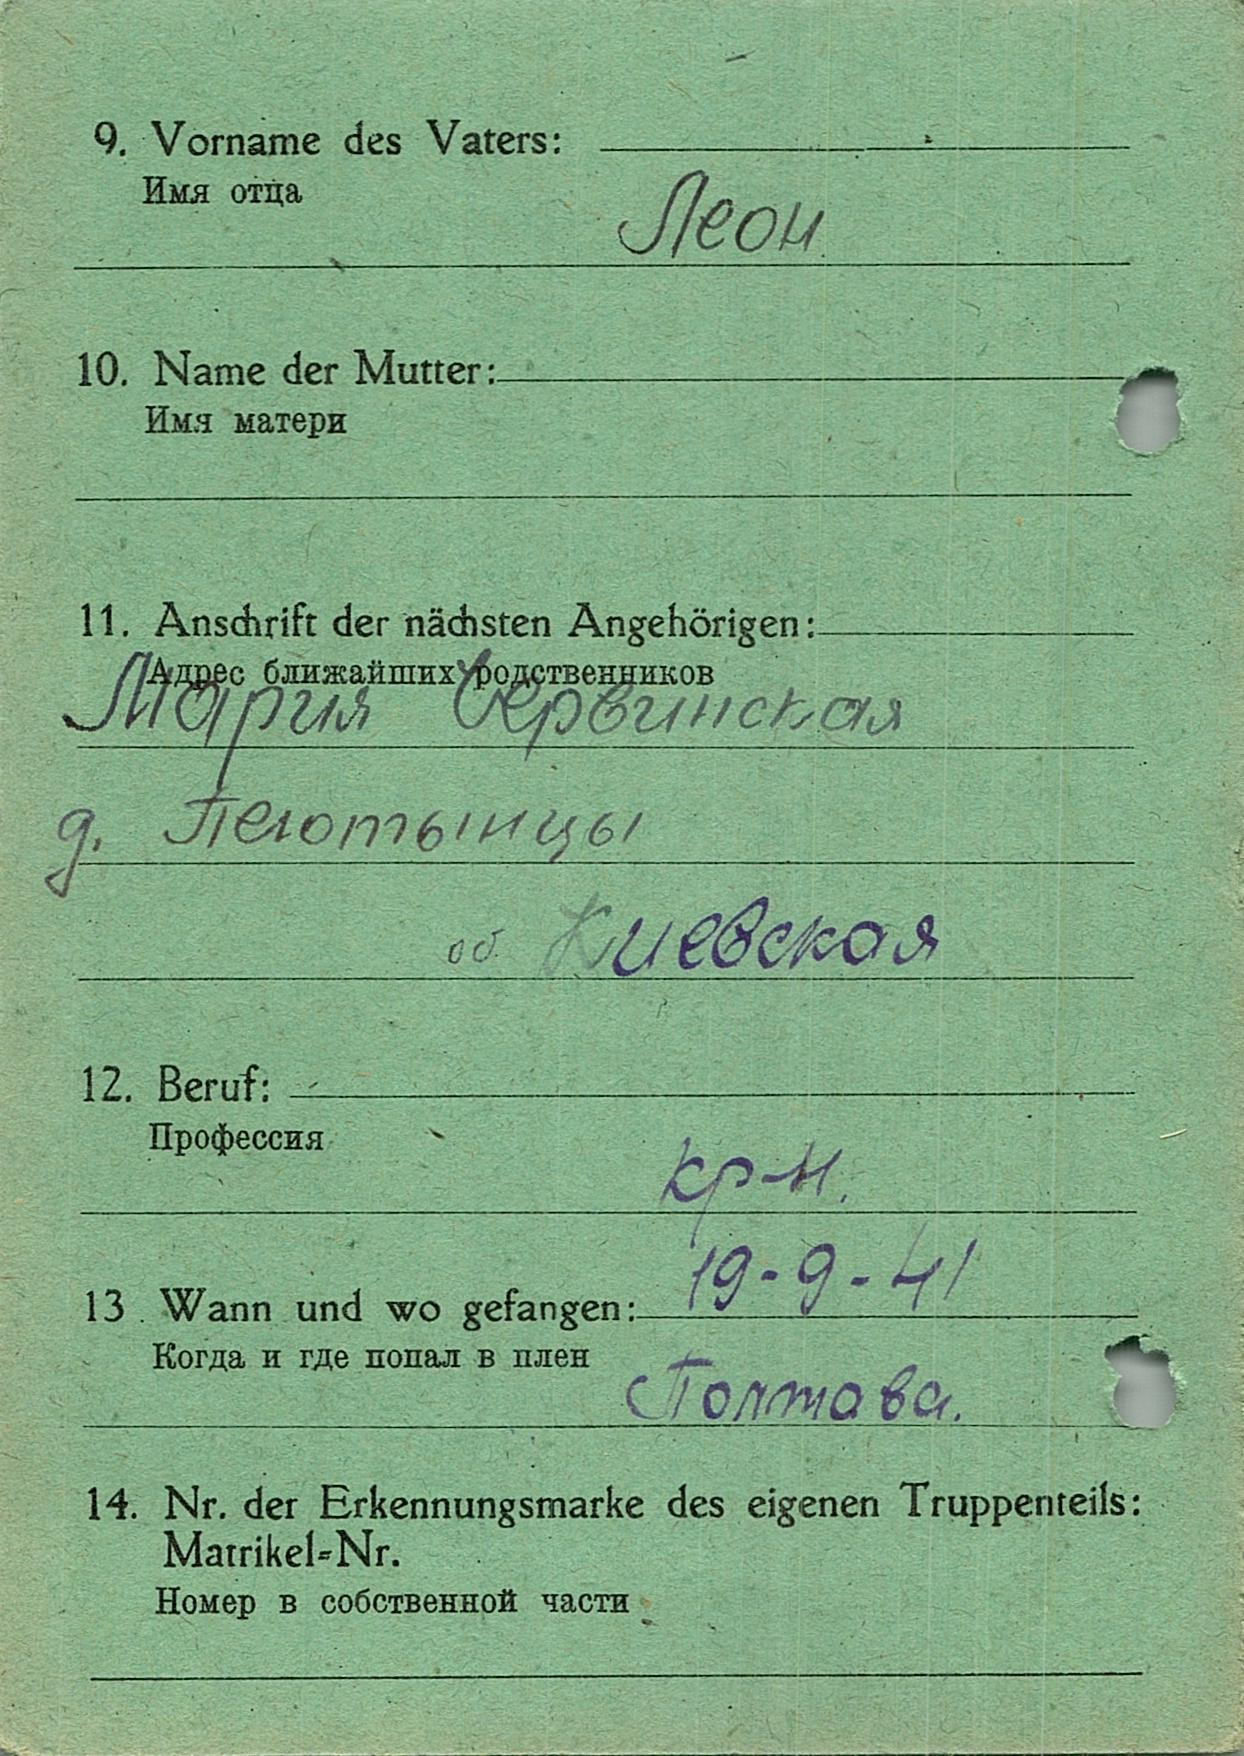 9. Vorname des Vaters:
Имя отца
Леон
10. Name der Mutter:
Имя матери
11. Anschrift der nächsten Angehörigen:
Адрес ближайших родственников
Мария Сервинская
д.
об. Киевская
12. Beruf:
Профессия
кр-н.
19-9-41
13. Wann und wo gefangen:
Когда и где попал в плен
Полтава.
14. Nr. der Erkennungsmarke des eigenen Truppenteils:
Matrikel-Nr.
Номер в собственной части